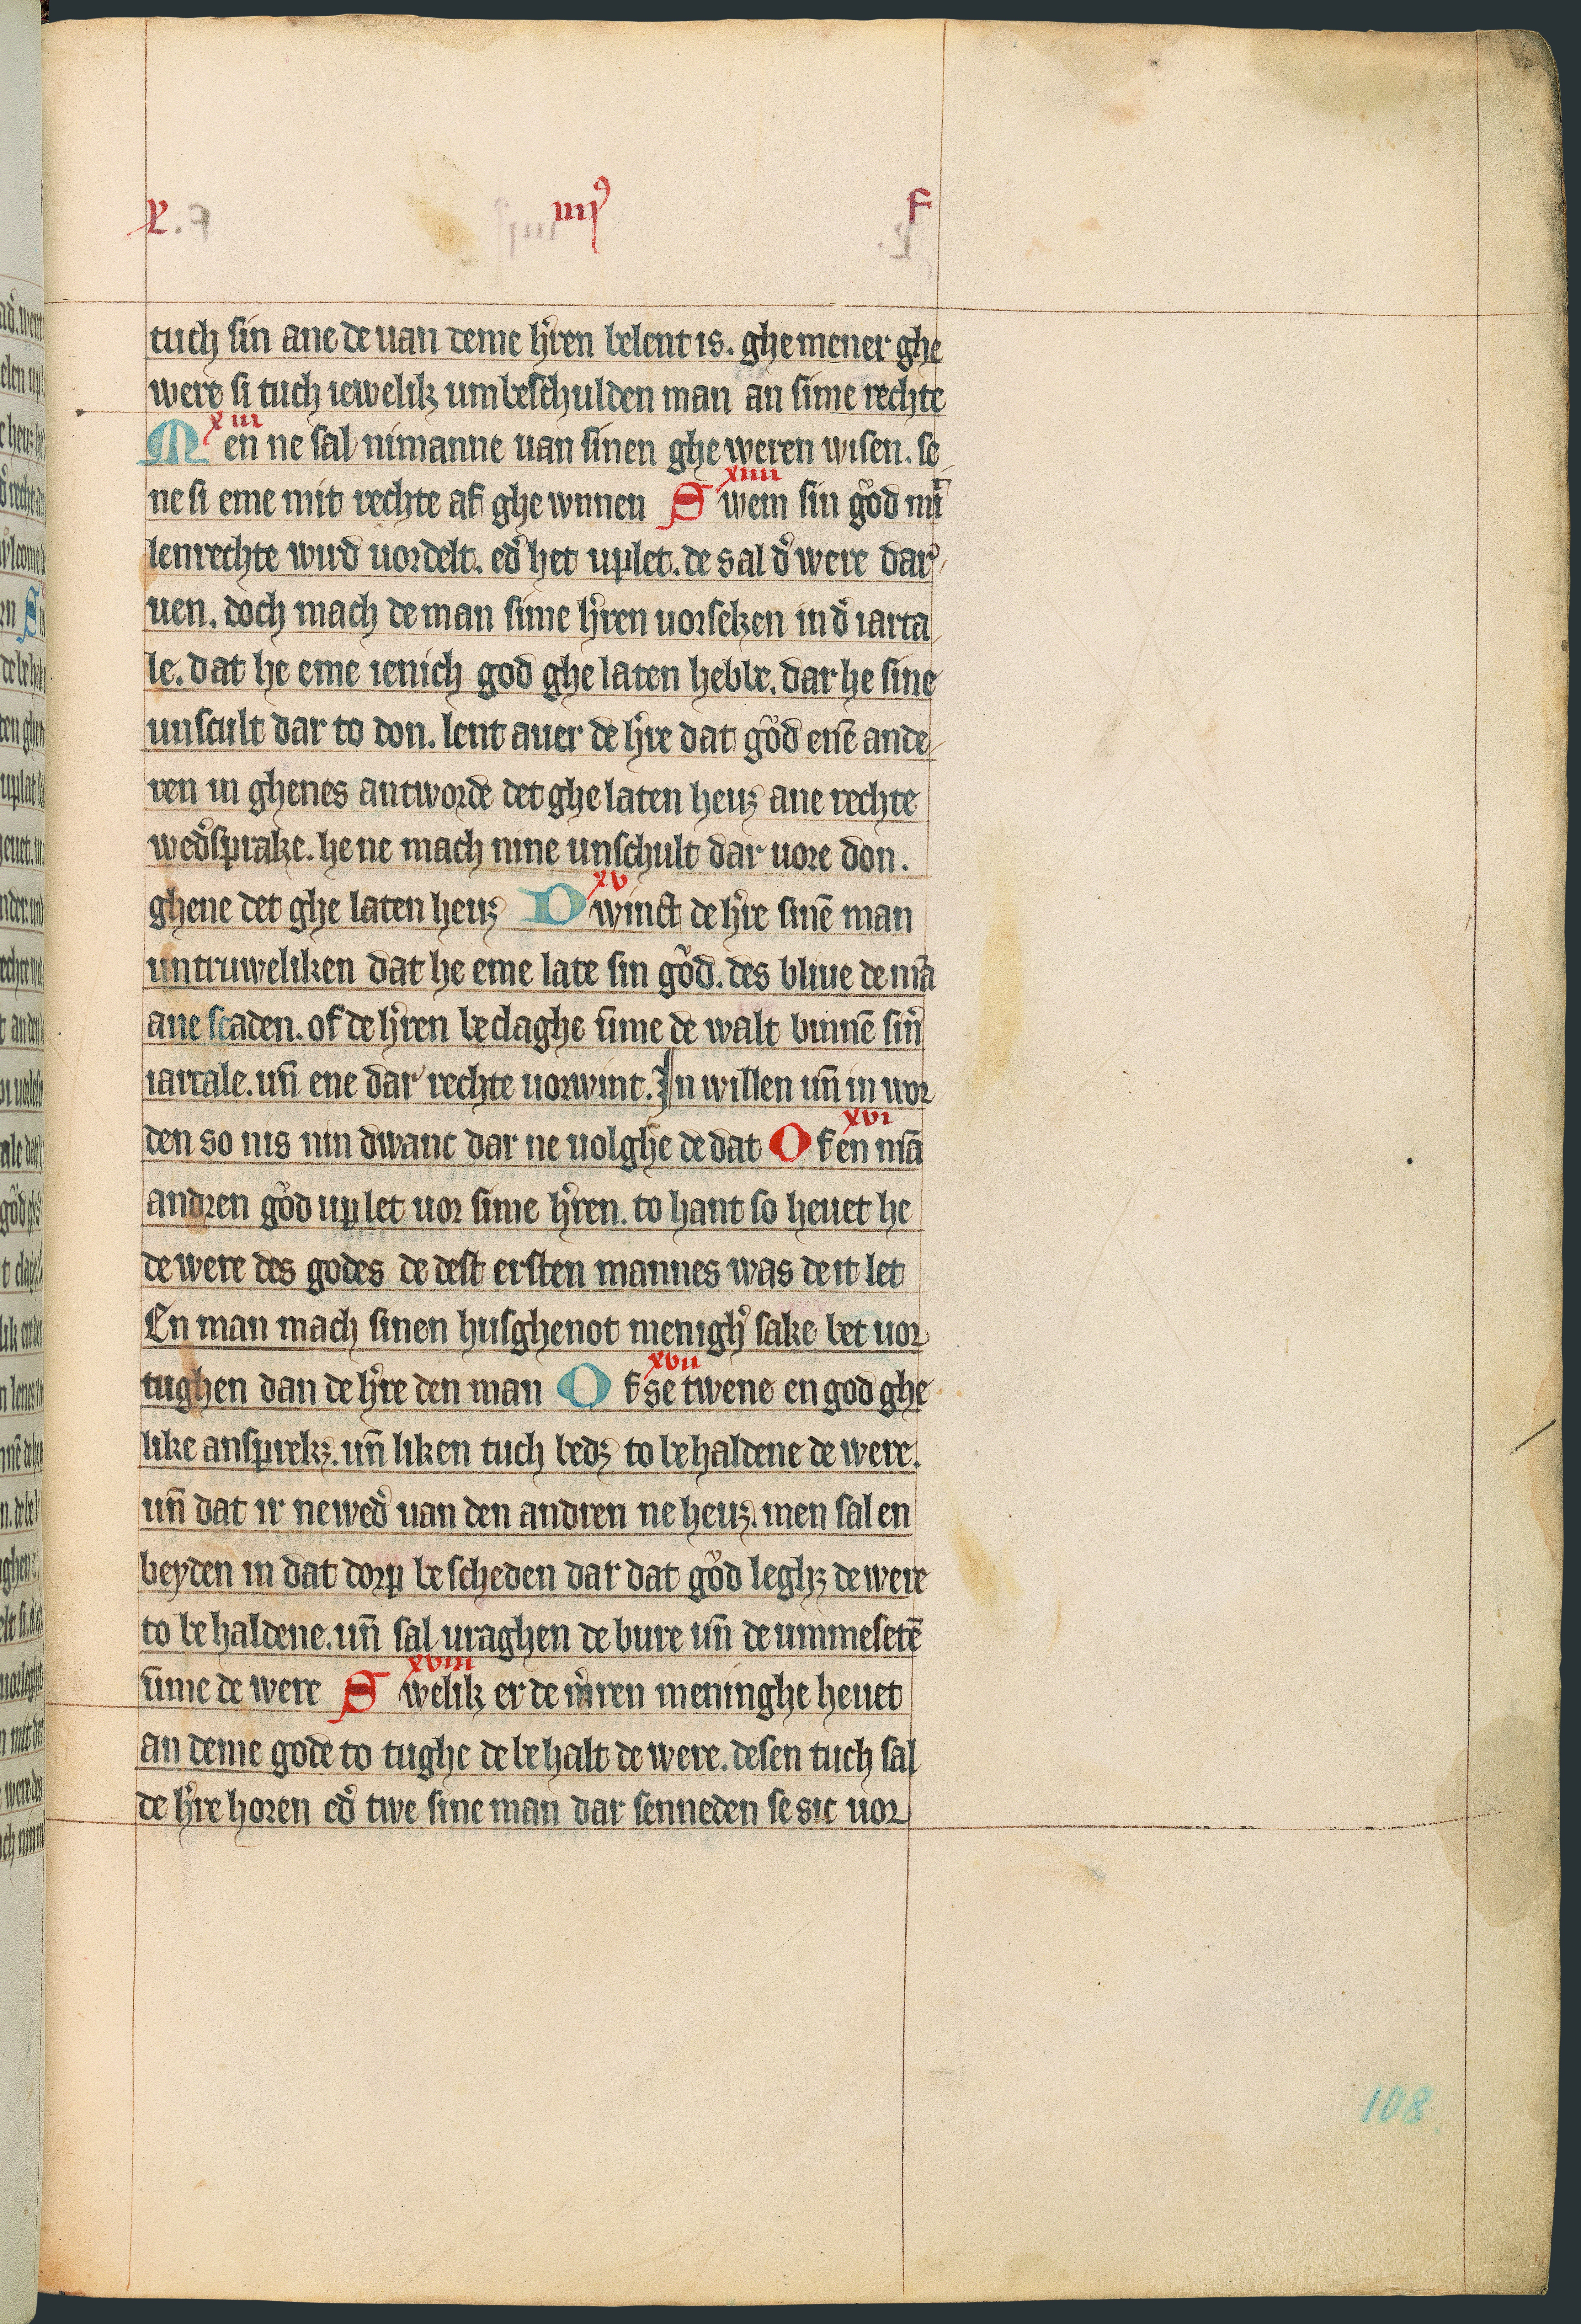 L. iiii⁹ F
tuch sin ane de uan deme h̓ren belent is. ghemener ghe
were si tuch iewelik umbeschulden man an sime rechte
xiii
Men ne sal nimanne uan sinen ghe weren wisen. se
xiiii
ne si eme mit rechte af ghe wnnen Swem sin gůd mi̅t
lenrechte wird uordelt. ed̓ het uplet. de sal d̓ were dar
uen. doch mach de man sime h̓ren uorseken in d̓ iarta
le. dat he eme ienich god ghe laten hebbe. dar he sine
unscult dar to don. lent auer de h̓re dat gůd enē ande
ren in ghenes antworde det ghe laten heuꝫ ane rechte
wed̓sprake. he ne mach nine unschult dar uore don.
xv
ghene det ghe laten heuꝫ Dwinct de h̓re sinē man
untruweliken dat he eme late sin gůd. des bliue de mā
ane scaden. of de h̓ren beclaghe ūme de walt binnē sin̓
iartale. un̄ ene dar rechte uorwint. In willen un̄ in wor
xvi
den so nis nin dwanc dar ne uolghe de dat Of en mā
andren gůd uplet uor sime h̓ren. to hant so heuet he
de were des godes de dest ersten mannes was de it let
En man mach sinen husghenot menigh̓ sake bet uor
xvii
tughen dan de h̓re den man Of se twene en god ghe
like ansprekꝫ. un̄ liken tuch bedꝫ to behaldene de were.
un̄ dat ir newed̓ uan den andren ne heuꝫ. men sal en
beyden in dat dorp be scheden dar dat gůd leghꝫ de were
to be haldene. un̄ sal uraghen de bure un̄ de ummesetē
xviii
ūme de were Swelik er de m̓ren meninghe heuet
an deme gode to tughe de behalt de were. desen tuch sal
de h̓re horen ed̓ twe sine man dar senneden se sic uor
108